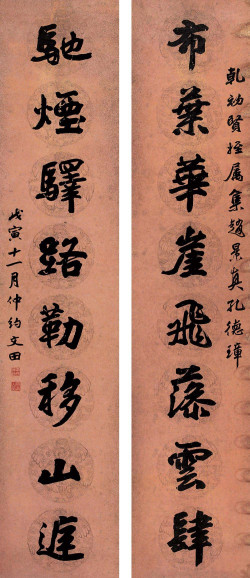 乾初賢姪属集趙景真孔德璋
布葉華崖飛藻雲肆
馳煙驛路勒移山庭
戊寅十一月仲約文田